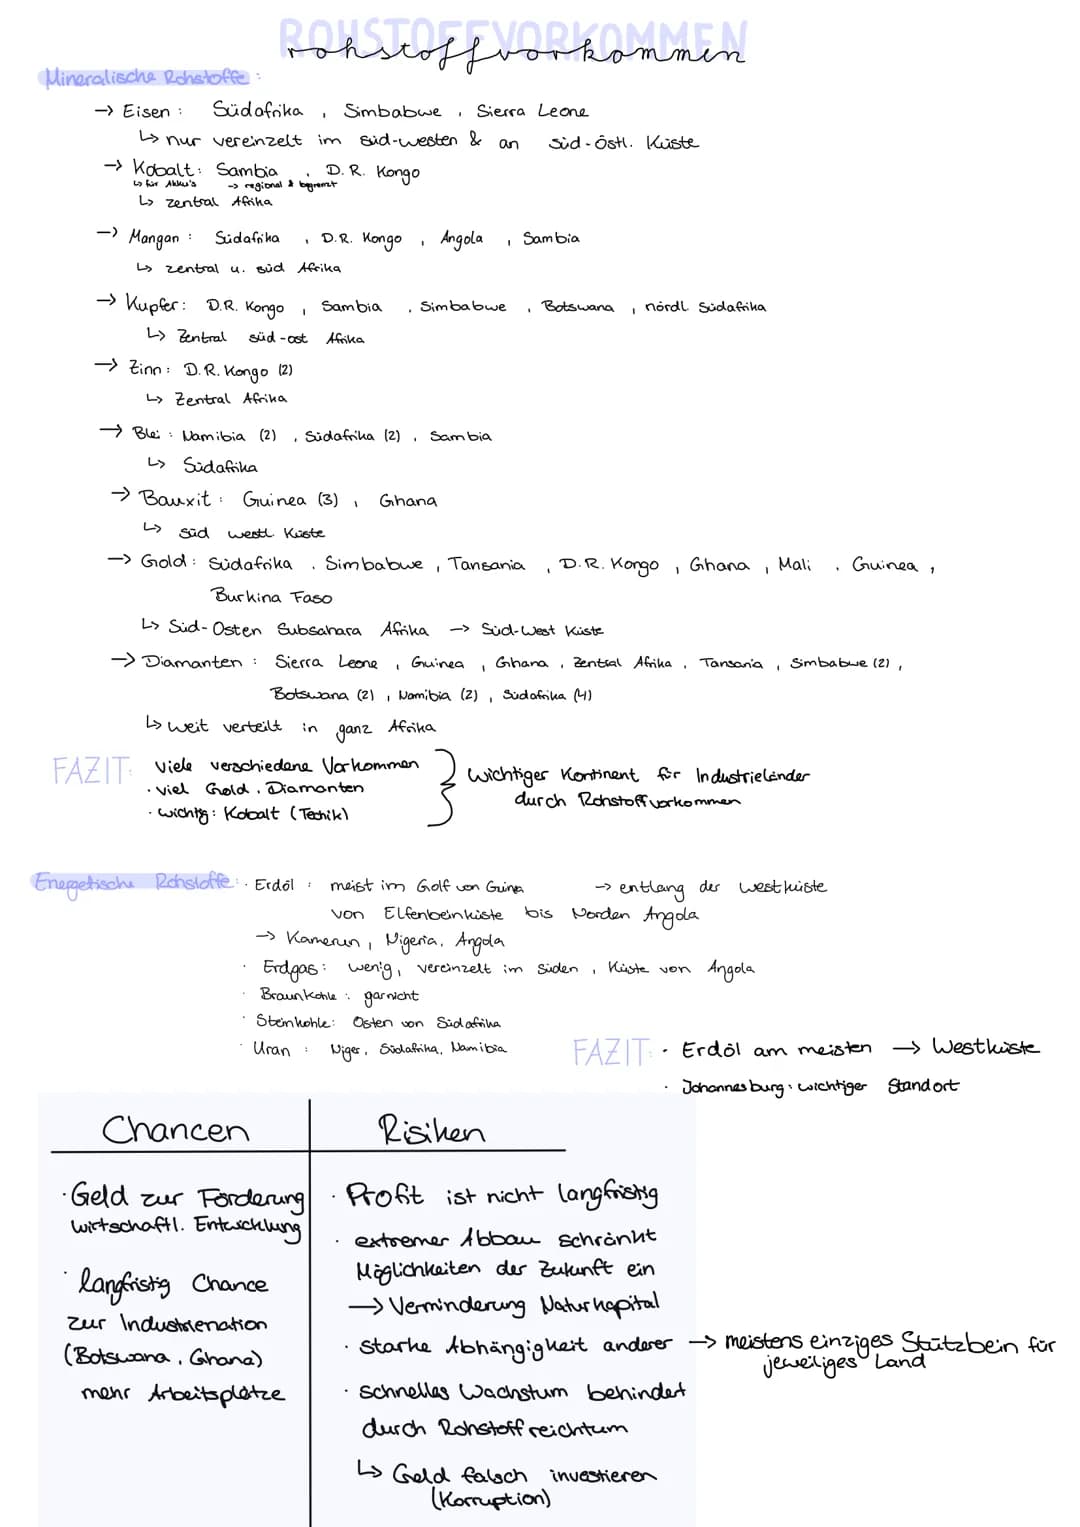 ROHSTOFFVORKOMMEN
rohstoffvorkommen
Mineralische Rohstoffe :
→ Eisen : Südafrika , Simbabwe , Sierra Leone
↳ nur vereinzelt im süd-westen & an süd-östl. Küste
→ Kobalt : Sambia , D.R. Kongo
↳ für Akku's → regional & begrenzt
↳ zentral Afrika
→ Mangan : Südafrika , D.R. Kongo , Angola , Sambia
↳ zentral u. süd Afrika
→ Kupfer : D.R. Kongo , Sambia , Simbabwe , Botswana , nördl Südafrika
↳ Zentral süd-ost Afrika
→ Zinn : D.R. Kongo (2)
↳ Zentral Afrika
→ Blei : Namibia (2) , Südafrika (2) , Sambia
↳ Südafrika
→ Bauxit : Guinea (3) , Ghana
↳ süd westl. Küste
→ Gold : Südafrika , Simbabwe , Tansania , D.R. Kongo , Ghana , Mali , Guinea ,
Burkina Faso
↳ Süd-Osten Subsahara Afrika → Süd-West Küste
→ Diamanten : Sierra Leone , Guinea , Ghana , Zentral Afrika , Tansania , Simbabwe (2) ,
Botswana (2) , Namibia (2) , Südafrika (4)
↳ weit verteilt in ganz Afrika
FAZIT: viele verschiedene Vorkommen
· viel Gold , Diamanten
· wichtig : Kobalt (Techik)
wichtiger Kontinent für Industrieländer
durch Rohstoffvorkommen
Energetische Rohstoffe : · Erdöl : meist im Golf von Guinea → entlang der westküste
von Elfenbeinküste bis Norden Angola
→ Kamerun , Nigeria , Angola
· Erdgas : wenig , vereinzelt im süden , Küste von Angola
· Braunkohle : garnicht
· Steinkohle : Osten von Südafrika
· Uran : Niger , Südafrika , Namibia
FAZIT : · Erdöl am meisten → Westküste
· Johannesburg : wichtiger Standort
Chancen
· Geld zur Förderung
wirtschaftl. Entwicklung
· langfristig Chance
zur Industrienation
(Botswana , Ghana)
mehr Arbeitsplätze
Risiken
· Profit ist nicht langfristig
· extremer Abbau schränkt
Möglichkeiten der Zukunft ein
→ Verminderung Naturkapital
· starke Abhängigkeit anderer → meistens einziges Stützbein für
jeweiliges Land
· schnelles Wachstum behindert
durch Rohstoffreichtum
↳ Geld falsch investieren
(Korruption)